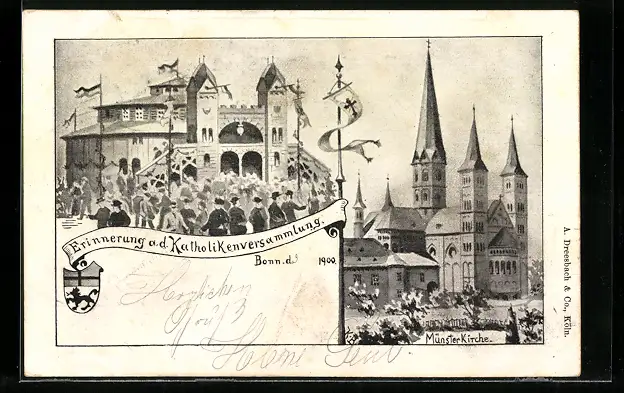 Erinnerung a.d. Katholikenversammlung.
Bonn. d. 1900.
Herzlichen
Gruß
Münster Kirche.
A. Dreesbach & Co., Köln.